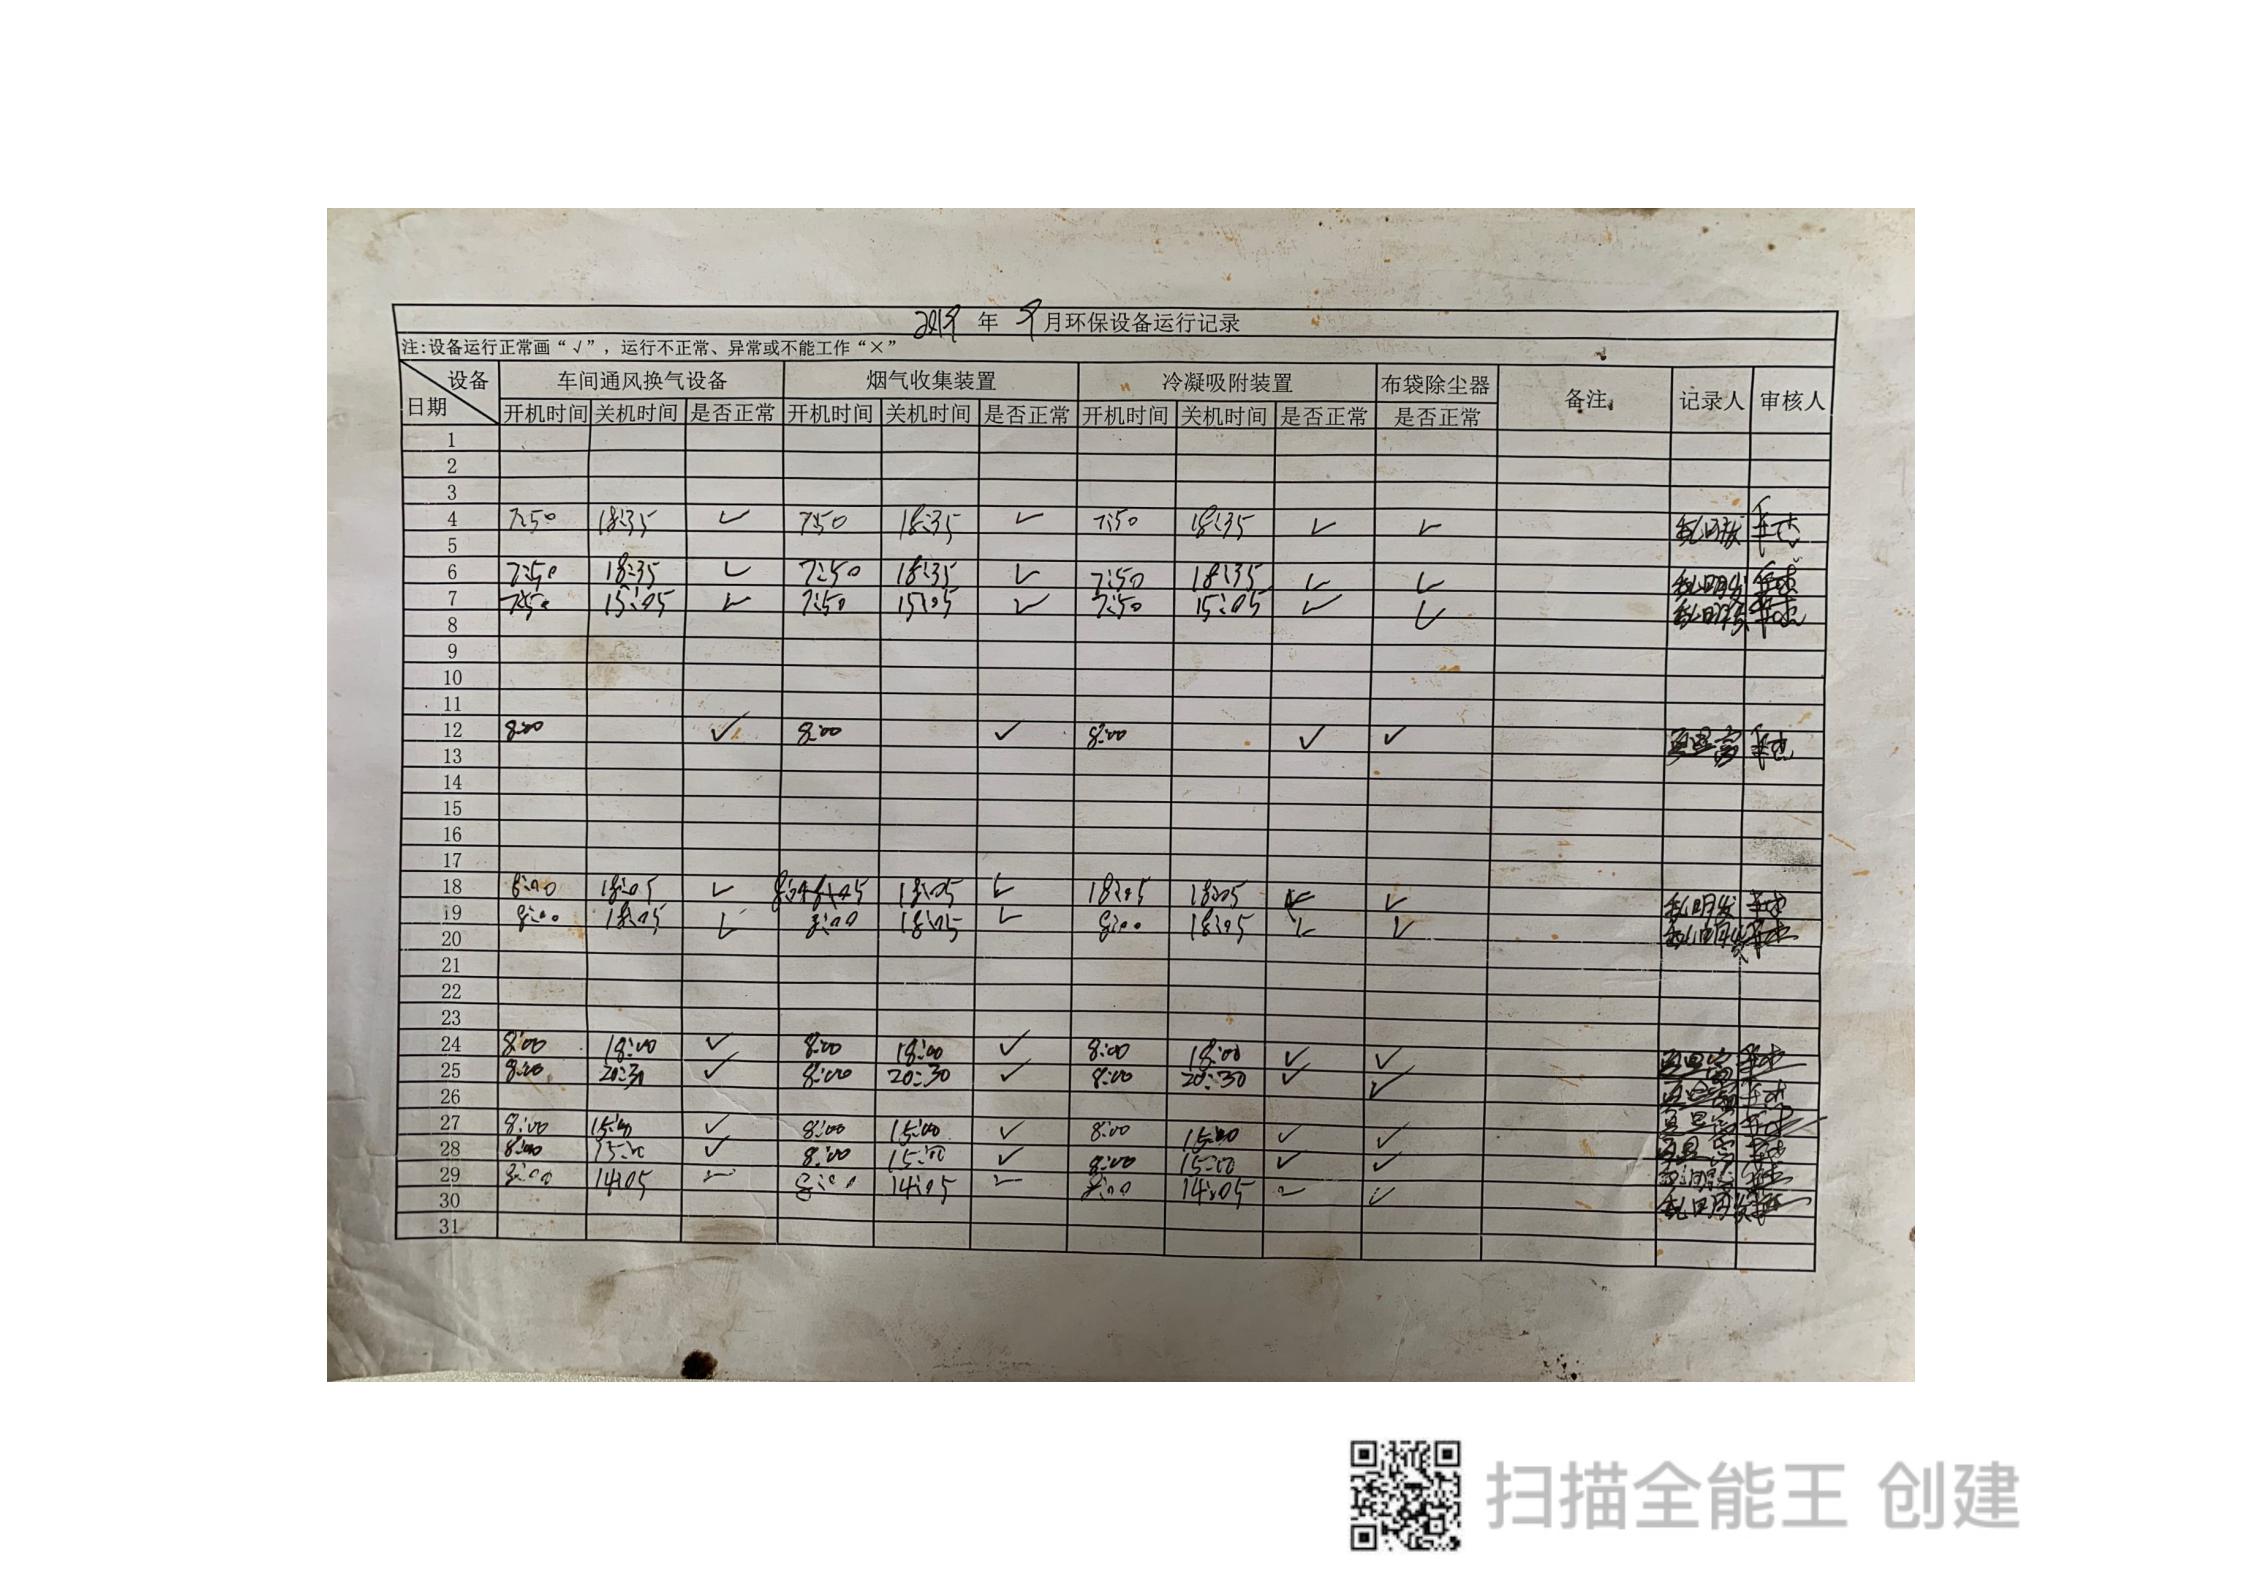 2019 年 9 月环保设备运行记录
注:设备运行正常画“√”，运行不正常、异常或不能工作“×”
设备 车间通风换气设备 烟气收集装置 冷凝吸附装置 布袋除尘器 备注 记录人 审核人
日期 开机时间 关机时间 是否正常 开机时间 关机时间 是否正常 开机时间 关机时间 是否正常 是否正常
1
2
3
4 7:50 18:35 ✓ 7:50 18:35 ✓ 7:50 18:35 ✓ ✓
5
6 7:50 18:35 ✓ 7:50 18:35 ✓ 7:50 18:35 ✓ ✓
7 7:50 15:05 ✓ 7:50 15:05 ✓ 7:50 15:05 ✓ ✓
8
9
10
11
12 8:00 ✓ 8:00 ✓ 8:00 ✓ ✓
13
14
15
16
17
18 8:00 18:05 ✓ 18:05 ✓ 18:05 18:05 ✓ ✓
19 8:00 18:05 ✓ 8:00 18:05 ✓ 8:00 18:05 ✓ ✓
20
21
22
23
24 8:00 18:00 ✓ 8:00 18:00 ✓ 8:00 18:00 ✓ ✓
25 8:00 20:30 ✓ 8:00 20:30 ✓ 8:00 20:30 ✓ ✓
26
27 8:00 15:00 ✓ 8:00 15:00 ✓ 8:00 15:00 ✓ ✓
28 8:00 15:00 ✓ 8:00 15:00 ✓ 8:00 15:00 ✓ ✓
29 8:00 14:05 ✓ 8:00 14:05 ✓ 8:00 14:05 ✓ ✓
30
31
扫描全能王 创建